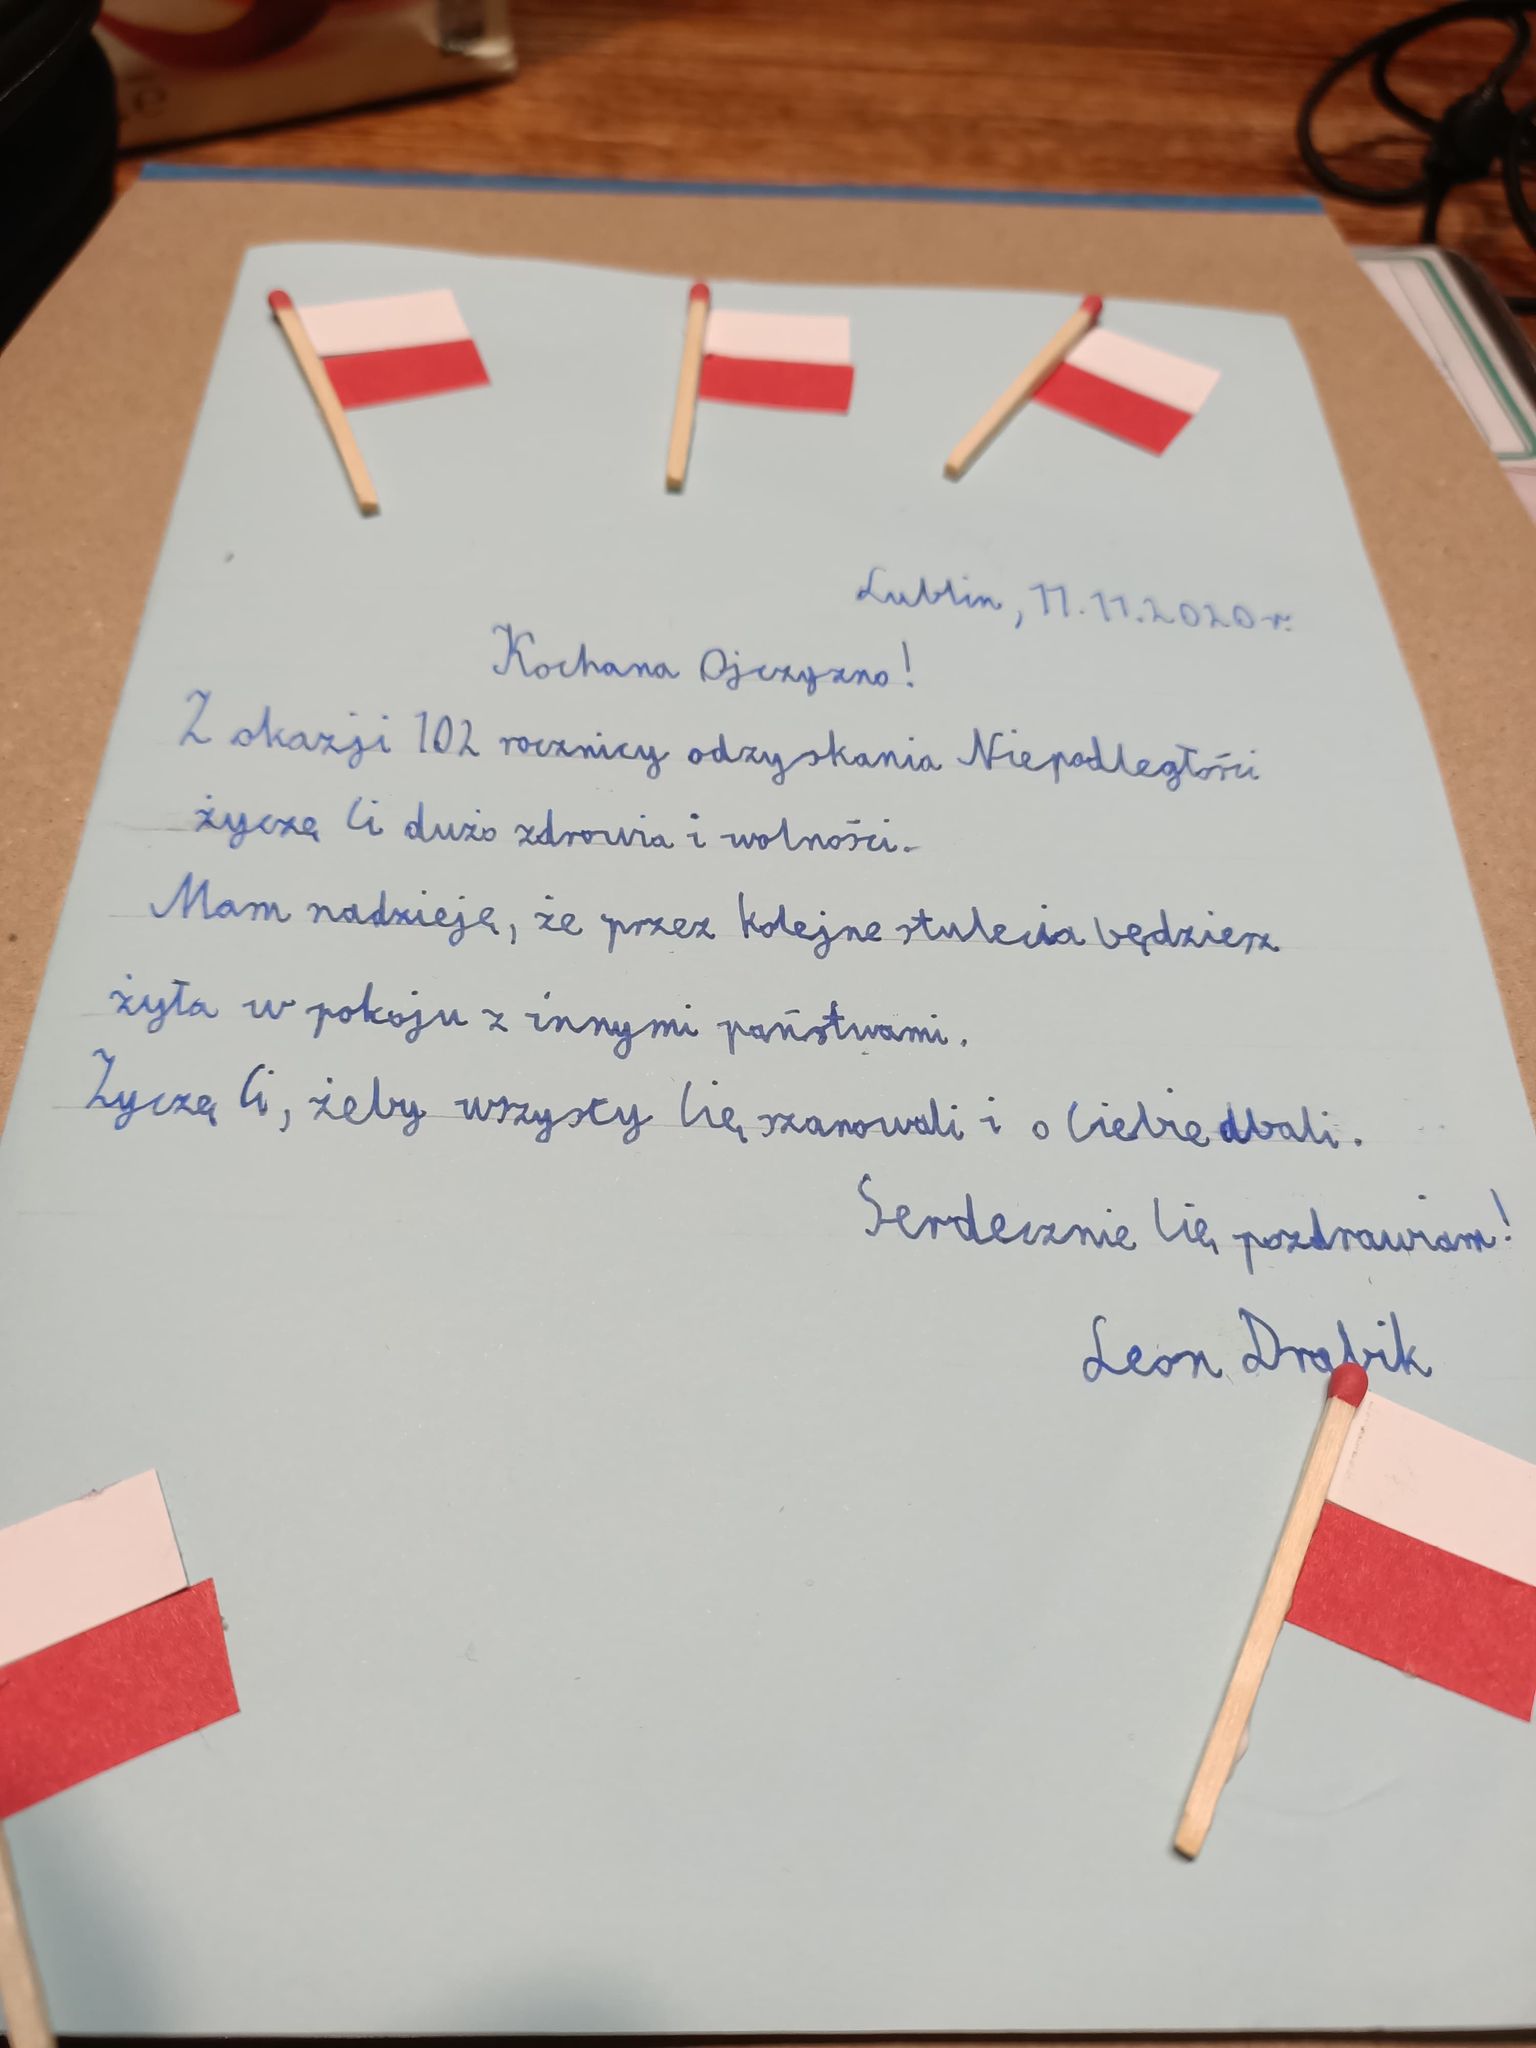 Lublin, 11.11.2020 r.
Kochana Ojczyzno!
Z okazji 102 rocznicy odzyskania Niepodległości
życzę Ci dużo zdrowia i wolności.
Mam nadzieję, że przez kolejne stulecia będziesz
żyła w pokoju z innymi państwami.
Życzę Ci, żeby wszyscy Cię szanowali i o Ciebie dbali.
Serdecznie Cię pozdrawiam!
Leon Drabik